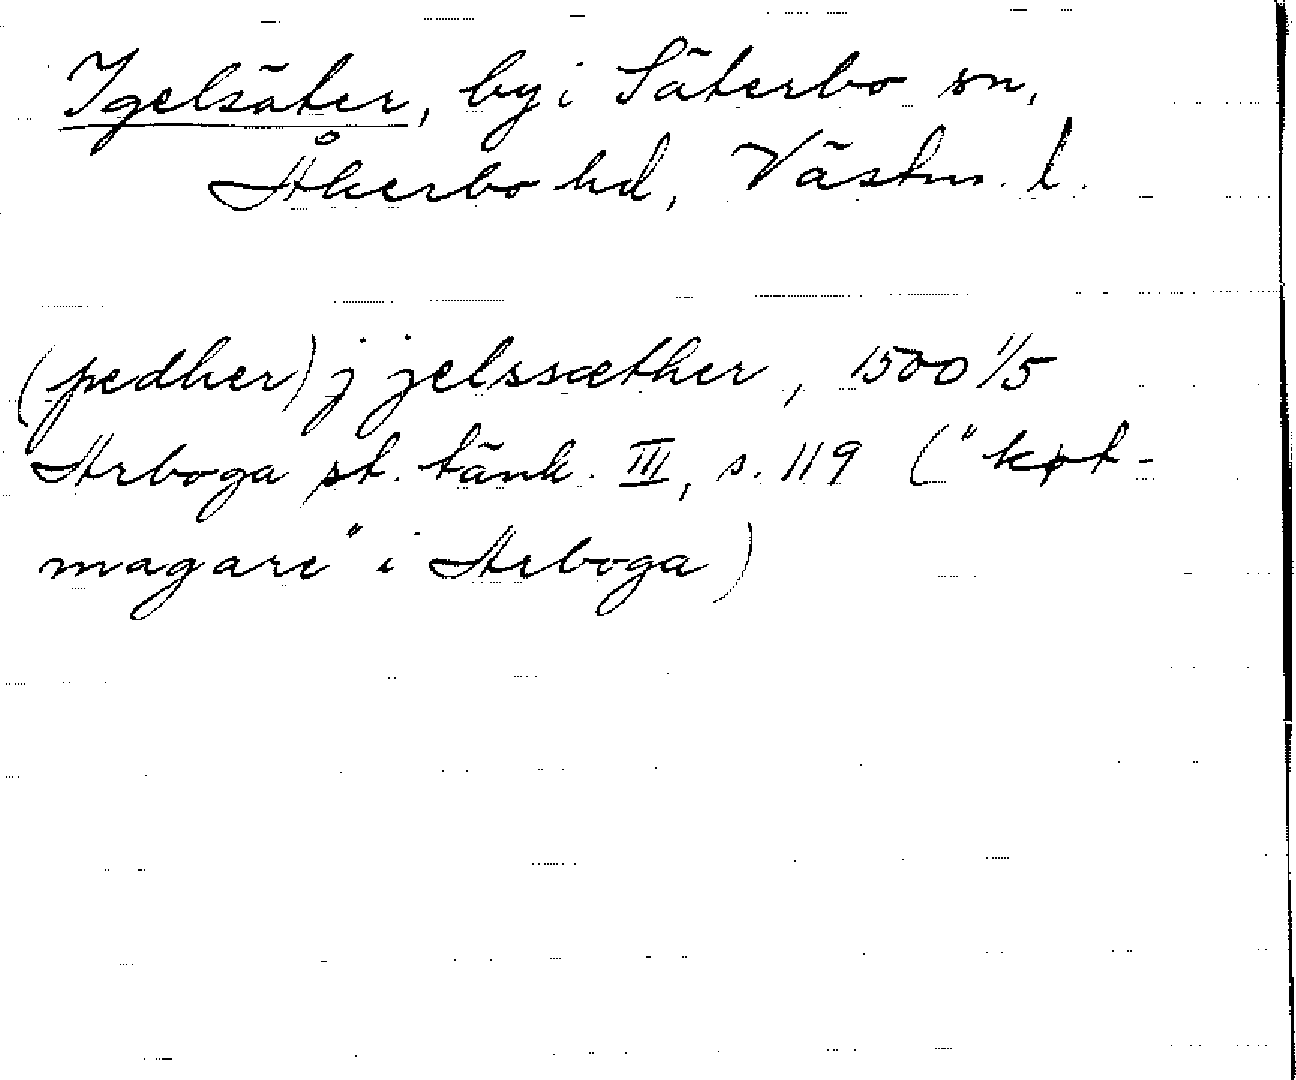 Igelsäter, by i Säterbo sn,
Åkerbo hd, Västm. l.
(pedher) j jelssæther, 1500 1/5
Arboga st. tänk. III, s. 119 ("køt-
magare" i Arboga)